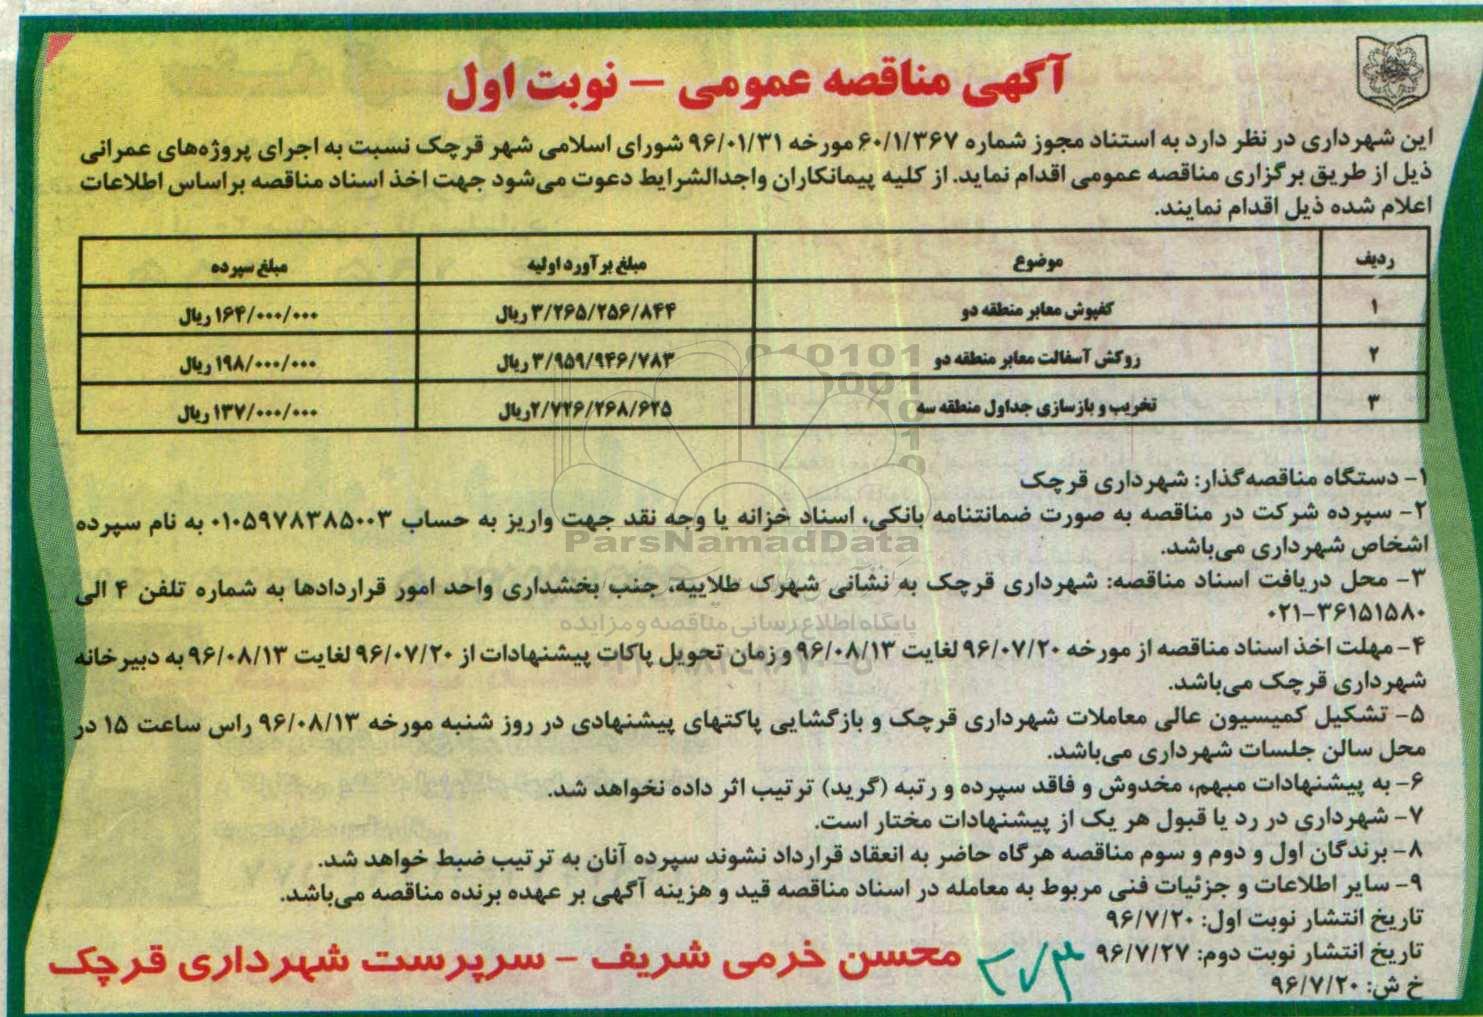 آگهی مناقصه عمومی – نوبت اول
این شهرداری در نظر دارد به استناد مجوز شماره ۶۰/۱/۳۶۷ مورخه ۹۶/۰۱/۳۱ شورای اسلامی شهر قرچک نسبت به اجرای پروژه‌های عمرانی
ذیل از طریق برگزاری مناقصه عمومی اقدام نماید. از کلیه پیمانکاران واجدالشرایط دعوت می‌شود جهت اخذ اسناد مناقصه براساس اطلاعات
اعلام شده ذیل اقدام نمایند.
ردیف موضوع مبلغ برآورد اولیه مبلغ سپرده
۱ کفپوش معابر منطقه دو ۳/۲۶۵/۲۵۶/۸۴۴ ریال ۱۶۴/۰۰۰/۰۰۰ ریال
۲ روکش آسفالت معابر منطقه دو ۳/۹۵۹/۹۴۶/۷۸۳ ریال ۱۹۸/۰۰۰/۰۰۰ ریال
۳ تخریب و بازسازی جداول منطقه سه ۲/۷۲۶/۲۶۸/۶۲۵ریال ۱۳۷/۰۰۰/۰۰۰ ریال
۱- دستگاه مناقصه‌گذار: شهرداری قرچک
۲- سپرده شرکت در مناقصه به صورت ضمانتنامه بانکی، اسناد خزانه یا وجه نقد جهت واریز به حساب ۰۱۰۵۹۷۸۳۸۵۰۰۳ به نام سپرده
اشخاص شهرداری می‌باشد.
ParsNamadData
۳- محل دریافت اسناد مناقصه: شهرداری قرچک به نشانی شهرک طلاییه، جنب بخشداری واحد امور قراردادها به شماره تلفن ۴ الی
۰۲۱-۳۶۱۵۱۵۸۰
پایگاه اطلاع رسانی مناقصه و مزایده
۴- مهلت اخذ اسناد مناقصه از مورخه ۹۶/۰۷/۲۰ لغایت ۹۶/۰۸/۱۳ و زمان تحویل پاکات پیشنهادات از ۹۶/۰۷/۲۰ لغایت ۹۶/۰۸/۱۳ به دبیرخانه
شهرداری قرچک می‌باشد.
۵- تشکیل کمیسیون عالی معاملات شهرداری قرچک و بازگشایی پاکتهای پیشنهادی در روز شنبه مورخه ۹۶/۰۸/۱۳ راس ساعت ۱۵ در
محل سالن جلسات شهرداری می‌باشد.
۶- به پیشنهادات مبهم، مخدوش و فاقد سپرده و رتبه (گرید) ترتیب اثر داده نخواهد شد.
۷- شهرداری در رد یا قبول هر یک از پیشنهادات مختار است.
۸- برندگان اول و دوم و سوم مناقصه هرگاه حاضر به انعقاد قرارداد نشوند سپرده آنان به ترتیب ضبط خواهد شد.
۹- سایر اطلاعات و جزئیات فنی مربوط به معامله در اسناد مناقصه قید و هزینه آگهی بر عهده برنده مناقصه می‌باشد.
تاریخ انتشار نوبت اول: ۹۶/۷/۲۰
تاریخ انتشار نوبت دوم: ۹۶/۷/۲۷
خ ش: ۹۶/۷/۲۰
محسن خرمی شریف – سرپرست شهرداری قرچک